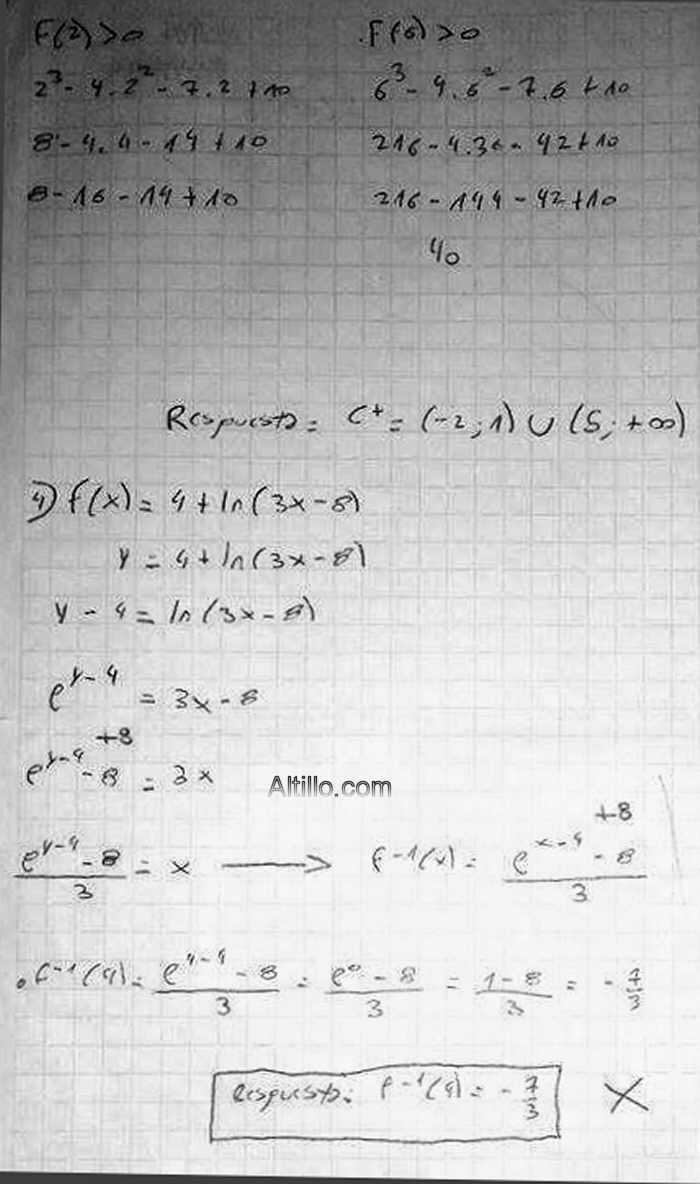 F(2)>0 F(6)>0
2³ - 4.2² - 7.2 + 10 6³ - 4.6² - 7.6 + 10
8 - 4.4 - 14 + 10 216 - 4.36 - 42 + 10
8 - 16 - 14 + 10 216 - 144 - 42 + 10
40
Respuesta = C⁺ = (-2; 1) ∪ (5; +∞)
4) f(x) = 4 + ln(3x-8)
y = 4 + ln(3x-8)
y - 4 = ln(3x-8)
e^(y-4) = 3x-8
+8
e^(y-4) - 8 = 3x
Altillo.com
+8
(e^(y-4) - 8)/3 = x → f⁻¹(x) = (e^(x-4) - 8)/3
. f⁻¹(4) = (e^(4-4) - 8)/3 = (e⁰ - 8)/3 = (1-8)/3 = -7/3
Respuesta: f⁻¹(4) = -7/3 X